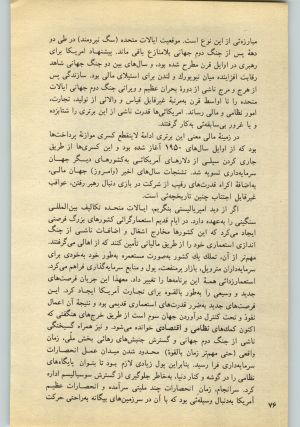 مبارزه‌ئی از این نوع است. موقعیت ایالات متحده (سگ نیرومند) در طی دو
دههٔ پس از جنگ دوم جهانی بلامنازع باقی ماند. پیشنهاد امریکا برای
رهبری در اوایل قرن مطرح شده بود، و سال‌های بین دو جنگ جهانی شاهد
رقابت افزاینده میان نیویورک و لندن برای استیلای مالی بود. سازندگی پس
از هرج و مرج ناشی از دورهٔ بحران عظیم و ویرانی جنگ دوم جهانی ایالات
متحده را تا اواسط قرن به‌مرتبهٔ غیرقابل قیاس و والائی از تولید، تجارت،
امور نظامی و مالی رساند. امریکائی‌ها قدرت ناشی از این برتری را شتابزده
و با غرور بی‌سابقه‌ئی به‌کار گرفتند.
در زمینهٔ مالی معنی این برتری ادامهٔ لاینقطع کسری موازنهٔ پرداخت‌ها
بود که از اوایل سال‌های ۱۹۵۰ آغاز شده بود و این کسری‌ها از طریق
جاری کردن سیلی از دلارهای آمریکائی به‌کشورهای دیگر جهان
سرمایه‌داری تسویه شد. تشنجات سال‌های اخیر (امروز) جهان مالی،
به‌اضافهٔ اکراه قدرت‌های رقیب از شرکت در بازی دنبال رهبر رفتن، عواقب
غیرقابل اجتناب چنین تاریخچه‌ئی است.
اگر از دید امپریالیستی بنگریم، ایالات متحده تکالیف بین‌المللی
سنگینی را به‌عهده دارد. در ایام قدیم استعمارگرائی کشورهای بزرگ فرصتی
ایجاد می‌کرد که این کشورها مخارج اشغال و اضافات ناشی از جنگ
اندازی استعماری خود را از طریق مالیاتی تأمین کنند که از اهالی می‌گرفتند.
مهم‌تر از آن، تملك يك کشور به‌صورت مستعمره به‌طور خود به‌خودی برای
سرمایه‌داران متروپل، بازار پرمنفعت، پول و منابع سرمایه‌گذاری فراهم می‌کرد.
استعمارزدائی همهٔ این برنامه‌ها را تغییر داد. معهذا این جریان فرصت‌های
جدید و وسیعی را به‌طور بالقوه برای تجارت آمریکا ایجاد کرد. این
فرصت‌های جدید به‌ضرر قدرت‌های استعماری قدیمی بود و نتیجهٔ آن اعمال
نفوذ و تحت کنترل درآوردن جهان سوم است از طریق خرج‌های هنگفتی که
اکنون کمك‌های نظامی و اقتصادی خوانده می‌شود. و نیز همراه گسیختگی
ناشی از جنگ دوم جهانی و گسترش جنبش‌های رهائی بخش ملی، زمان
واقعی (حتی مهم‌تر زمان بالقوهٔ) محدود شدن میدان عمل انحصارات
سرمایه‌داری فرا رسید. بنابراین پول زیادی لازم بود تا بتوان پایگاه‌های
نظامی را در گوشه و کنار دنیا، به‌خاطر جلوگیری از گسترش سوسیالیسم اداره
کرد. سرانجام، زمان انحصارات چند ملیتی سرآمده و انحصارات عظیم
آمریکا به‌دنبال وسیله‌ئی بود که با آن در سرزمین‌های بیگانه به‌راحتی حرکت
۷۶